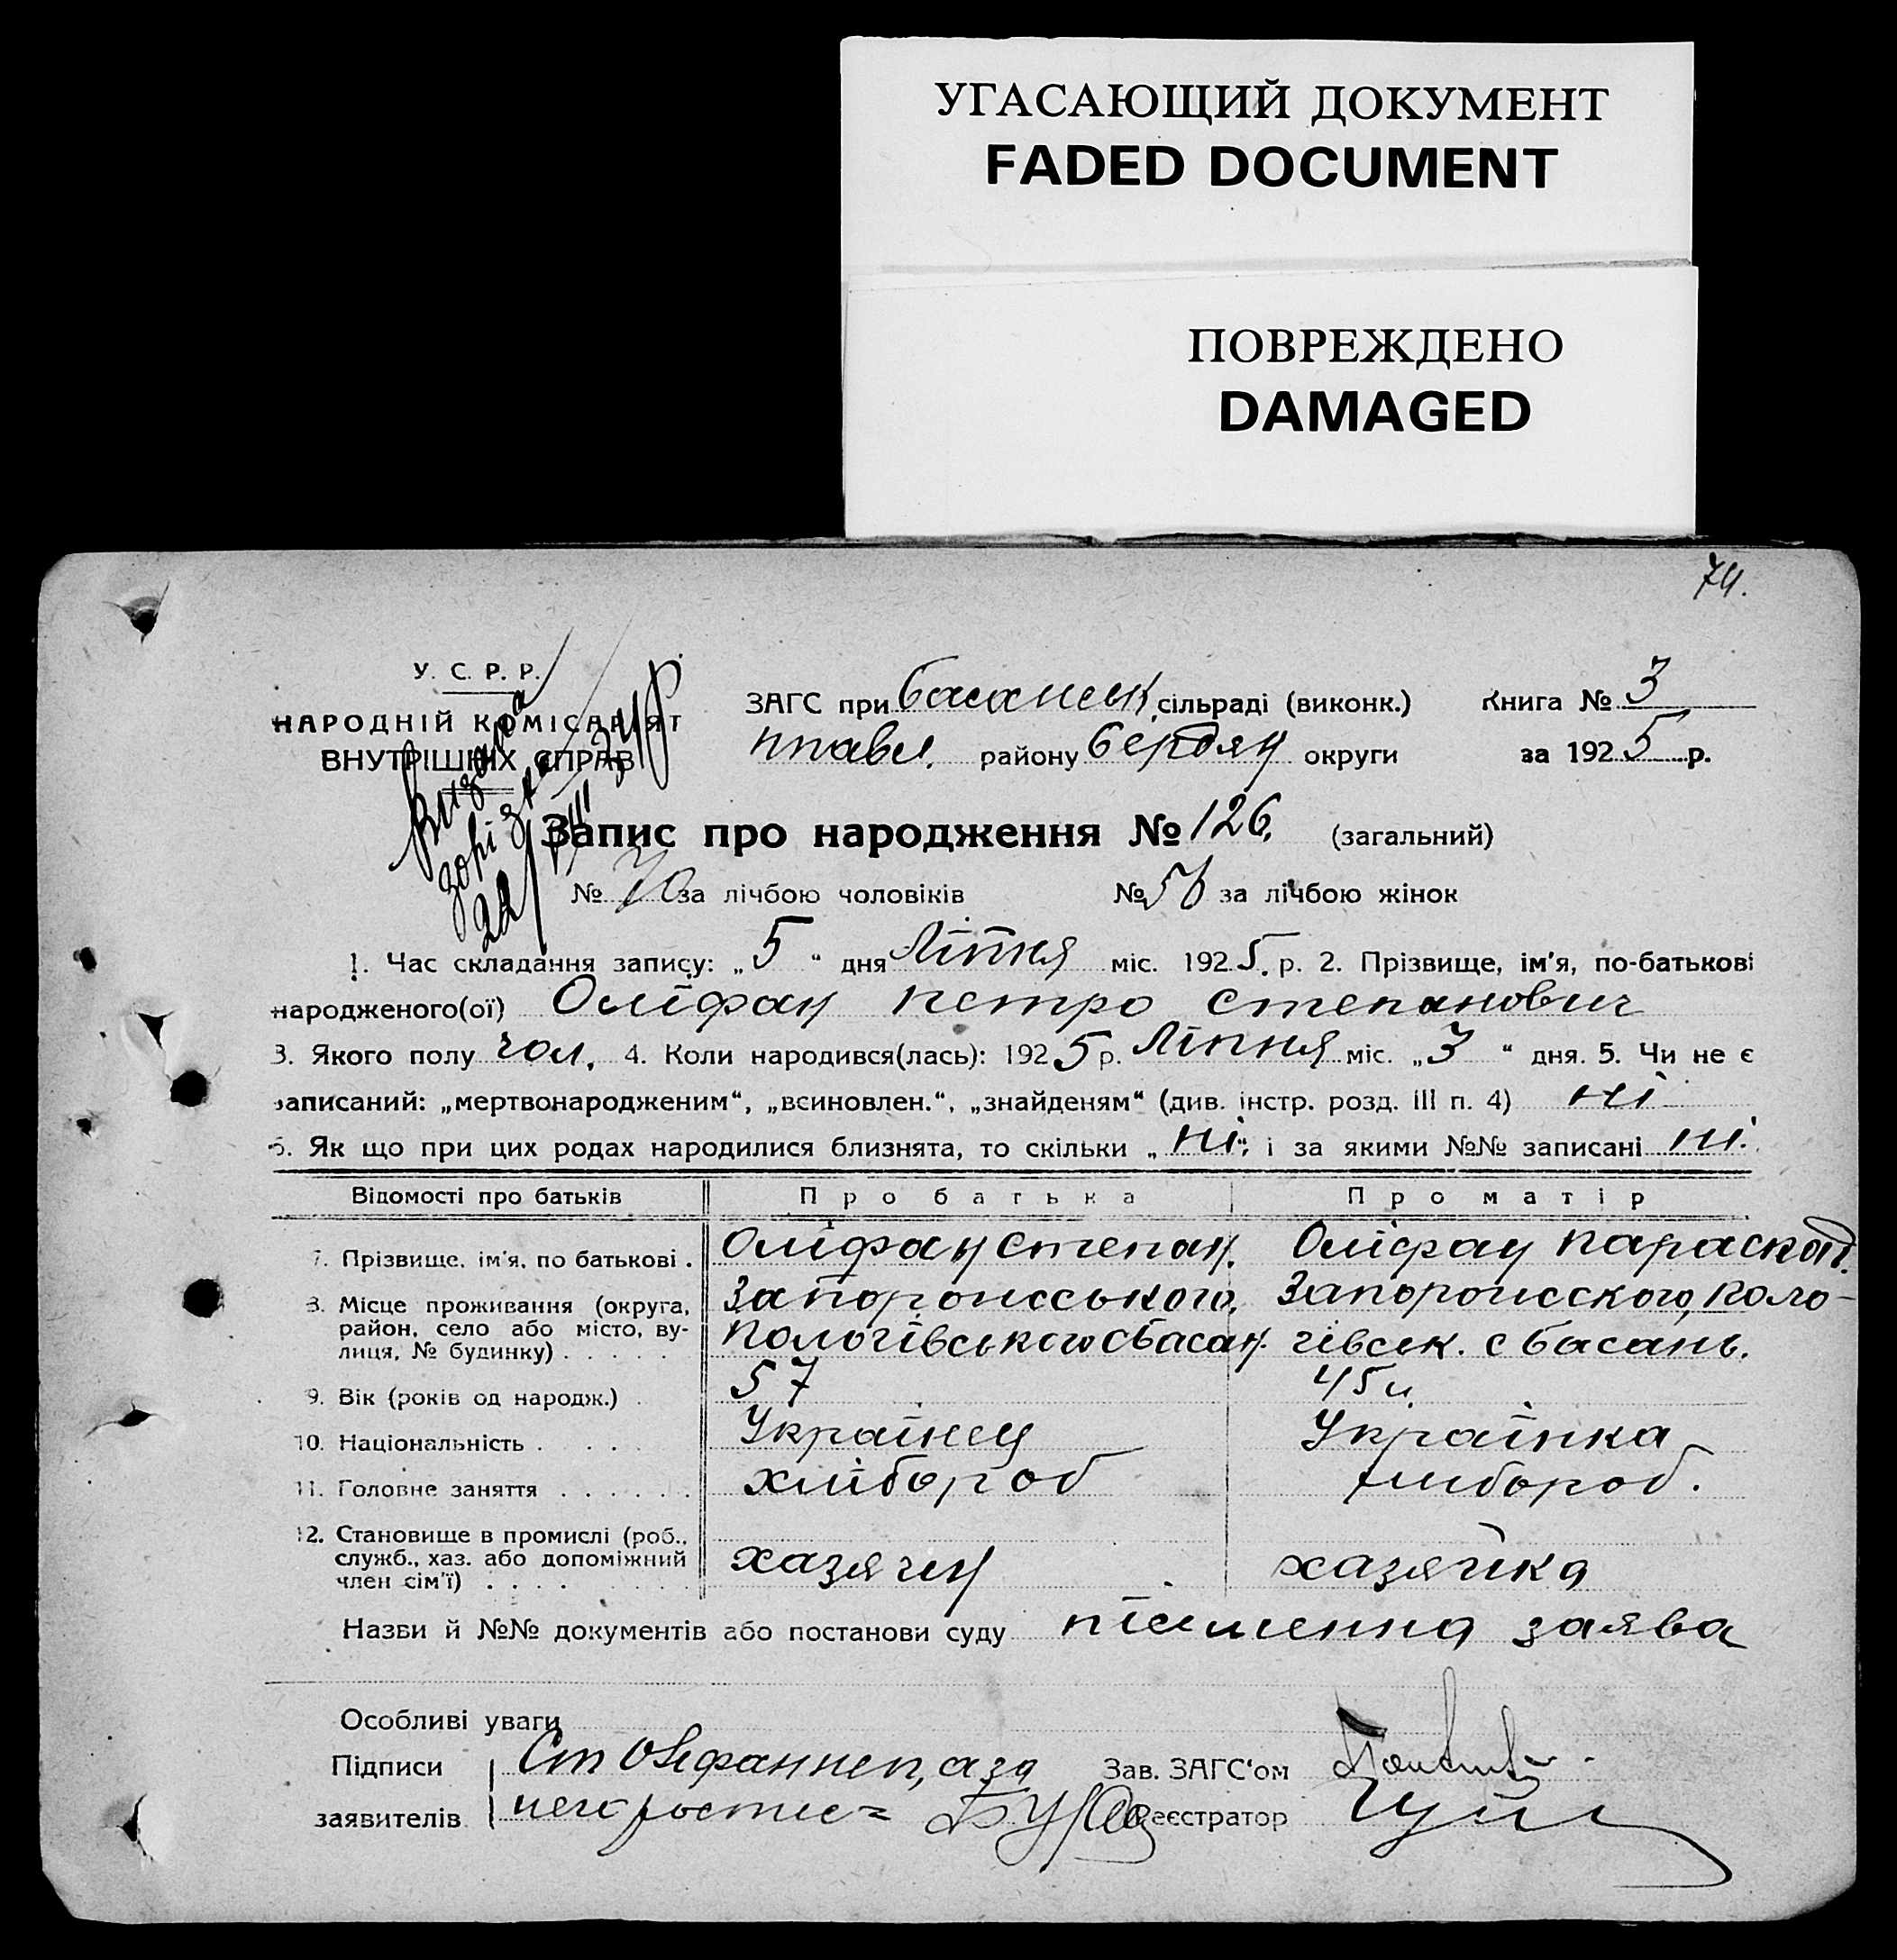 УГАСАЮЩИЙ ДОКУМЕНТ
FADED DOCUMENT
ПОВРЕЖДЕНО
DAMAGED
74.
У. С. Р. Р.
НАРОДНІЙ КОМІСАРІЯТ
ВНУТРІШНІХ СПРАВ
ЗАГС при басанськ. сільраді (виконк.) Книга № 3
району Бердян округи за 1925 р.
Запис про народження № 126. (загальний)
№ 70 за лічбою чоловіків № 56 за лічбою жінок
1. Час складання запису: „5“ дня Ліпня міс. 1925. р. 2. Прізвище, ім'я, по-батькові
народженого(ої) Оліфан петро степанович
3. Якого полу чол. 4. Коли народився(лась): 1925 р. Ліпня міс. „3“ дня. 5. Чи не є
записаний: „мертвонародженим“, „всиновлен.“, „знайденям“ (див. інстр. розд. III п. 4) ні
6. Як що при цих родах народилися близнята, то скільки „ні“ і за якими №№ записані ні.
Відомості про батьків Про батька Про матір
7. Прізвище, ім'я, по батькові . Оліфан степан. Оліфан параскад.
8. Місце проживання (округа, Запорожського, Запорожского, поло-
район, село або місто, ву- пологівського с басан. гівськ. с басань.
лиця, № будинку) . . . . .
9. Вік (років од народж.) . 57 45
10. Національність . . . . Українец Українка
11. Головне заняття . . . . . . хлібороб хлібороб.
12. Становище в промислі (роб.,
служб., хаз. або допоміжний хазяин хазяйка
член сім'ї) . . . .
Назви й №№ документів або постанови суду пісменна заява
Особливі уваги
Підписи Ст Олефан неп, а за Зав. ЗАГС'ом
заявителів Реєстратор